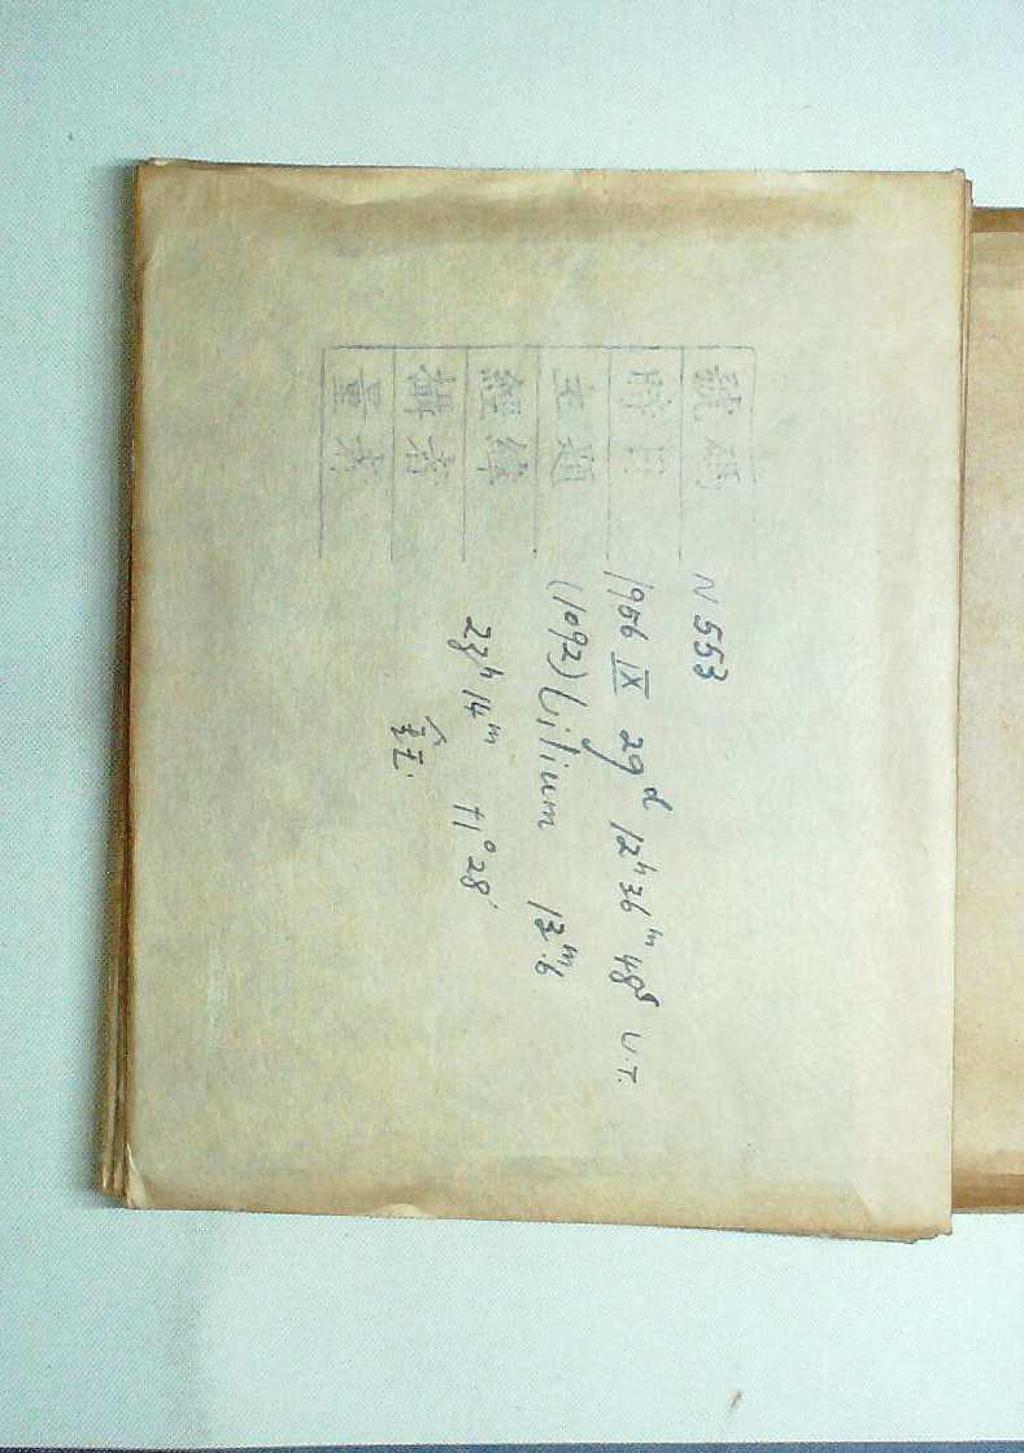 號碼 N 553
時日 1956 IX 29ᵈ 12ʰ 36ᵐ 48ˢ U.T.
主題 (1092) Lilium 13ᵐ.6
經緯 23ʰ 14ᵐ +1° 28′
攝者
量者